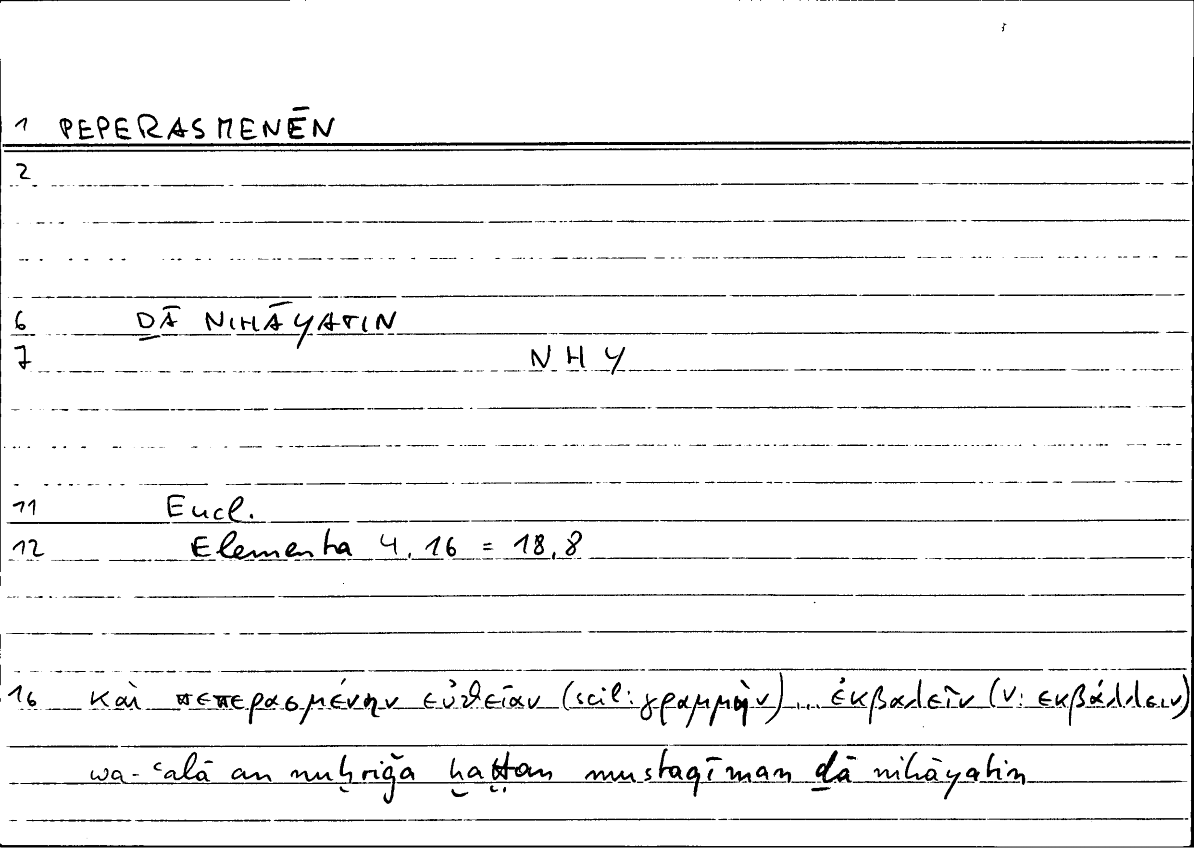 1 PEPERASMENĒN
2
6 ḎĀ NIHĀYATIN
7 NHY
11 Eucl.
12 Elementa 4,16 = 18,8
16 καὶ πεπερασμένην εὐθεῖαν (scil: γραμμὴν) ... ἐκβαλεῖν (v: εκβάλλειν)
wa-ʿalā an nuḫriǧa ḫaṭṭan mustaqīman ḏā nihāyatin